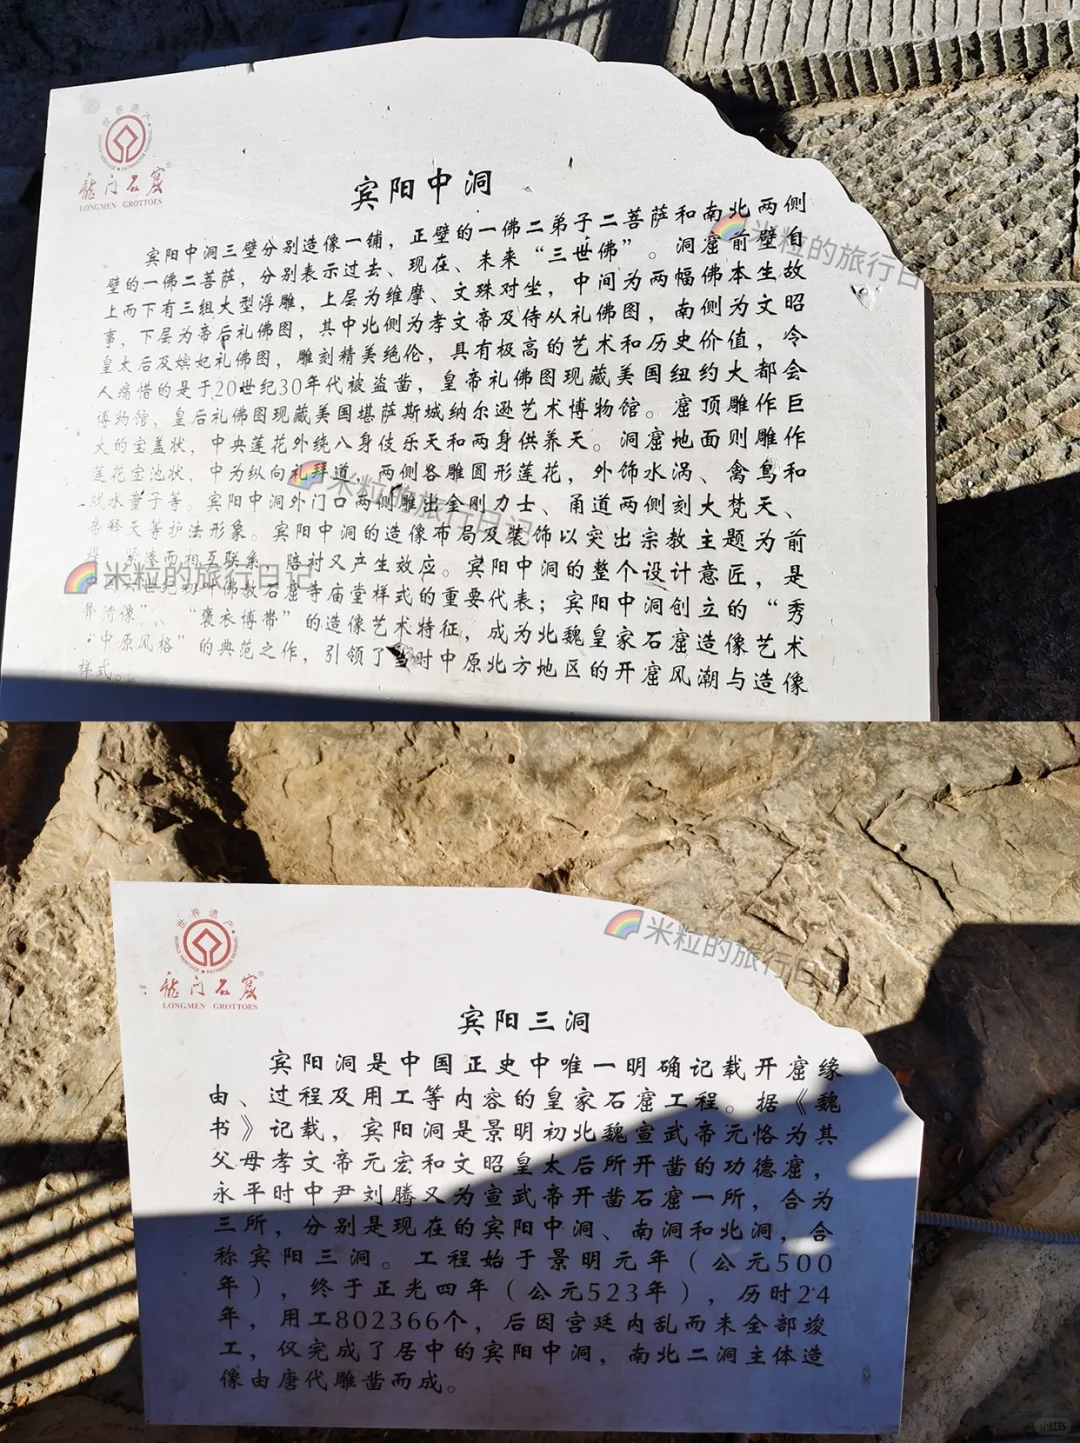 世界遗产
龙门石窟
LONGMEN GROTTOES
宾阳中洞
宾阳中洞三壁分别造像一铺，正壁的一佛二弟子二菩萨和南北两侧
壁的一佛二菩萨，分别表示过去、现在、未来“三世佛”。洞窟前壁自
上而下有三组大型浮雕，上层为维摩、文殊对坐，中间为两幅佛本生故
事，下层为帝后礼佛图，其中北侧为孝文帝及侍从礼佛图，南侧为文昭
皇太后及嫔妃礼佛图，雕刻精美绝伦，具有极高的艺术和历史价值，令
人痛惜的是于20世纪30年代被盗凿，皇帝礼佛图现藏美国纽约大都会
博物馆，皇后礼佛图现藏美国堪萨斯城纳尔逊艺术博物馆。窟顶雕作巨
大的宝盖状，中央莲花外绕八身伎乐天和两身供养天。洞窟地面则雕作
莲花宝池状，中为纵向礼拜道，两侧各雕圆形莲花，外饰水涡、禽鸟和
戏水童子等。宾阳中洞外门口两侧雕出金刚力士、甬道两侧刻大梵天、
帝释天等护法形象。宾阳中洞的造像布局及装饰以突出宗教主题为前
两相互联系、陪衬又产生效应。宾阳中洞的整个设计意匠，是
世纪初叶佛教石窟寺庙堂样式的重要代表；宾阳中洞创立的“秀
骨清像”、“褒衣博带”的造像艺术特征，成为北魏皇家石窟造像艺术
“中原风格”的典范之作，引领了当时中原北方地区的开窟风潮与造像
样式。
米粒的旅行日
米粒的旅行日记
米粒的旅行日记
世界遗产
WORLD HERITAGE • PATRIMOINE MONDIAL
龙门石窟
LONGMEN GROTTOES
宾阳三洞
宾阳洞是中国正史中唯一明确记载开窟缘
由、过程及用工等内容的皇家石窟工程。据《魏
书》记载，宾阳洞是景明初北魏宣武帝元恪为其
父母孝文帝元宏和文昭皇太后所开凿的功德窟，
永平时中尹刘腾又为宣武帝开凿石窟一所，合为
三所，分别是现在的宾阳中洞、南洞和北洞，合
称宾阳三洞。工程始于景明元年（公元500
年），终于正光四年（公元523年），历时24
年，用工802366个，后因宫廷内乱而未全部竣
工，仅完成了居中的宾阳中洞，南北二洞主体造
像由唐代雕凿而成。
米粒的旅行日
小红书